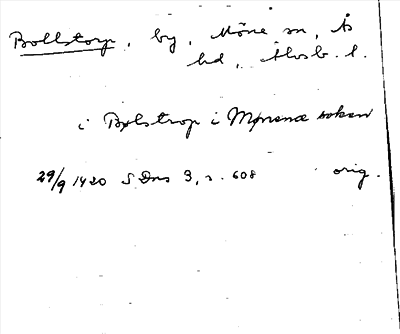 Bollstorp, by, Möne sn, Ås
hd, Älvsb. l.
i Bølstrop i Mønæ sokn
29/9 1420 SDns 3, s. 608 orig.